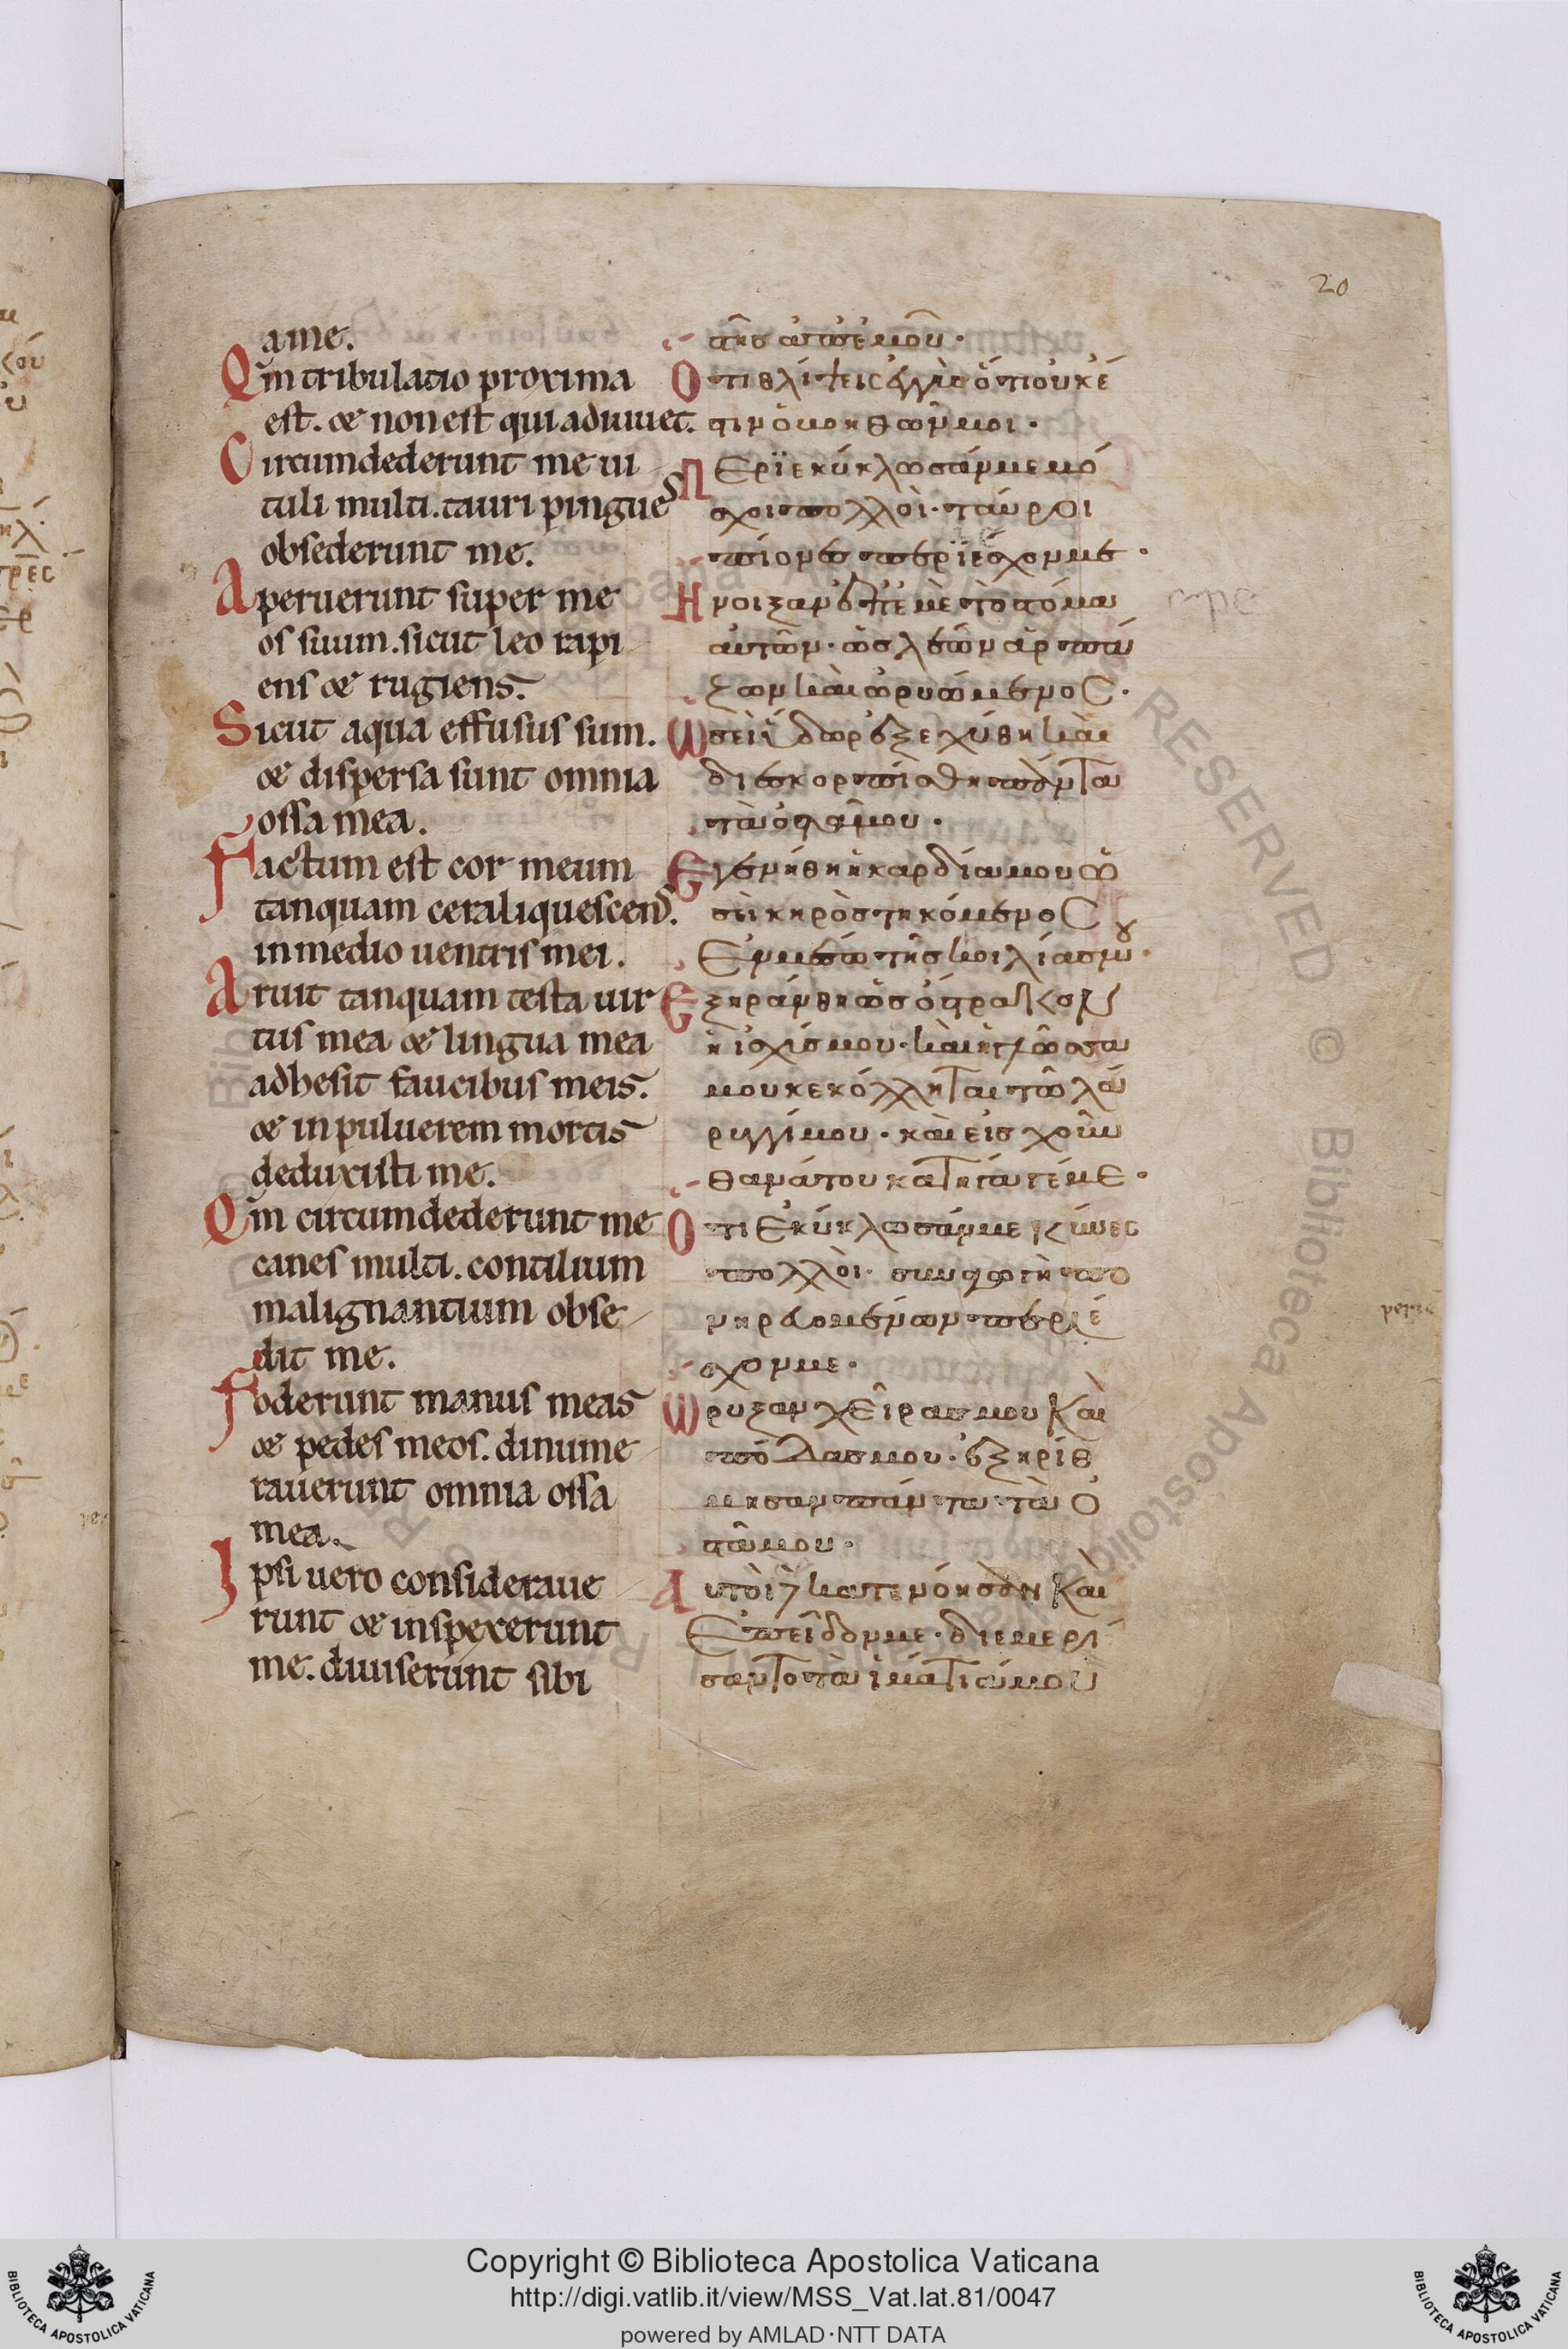 20
a me.
Qm̄ tribulatio proxima
est. & non est qui adiuuet.
Circumdederunt me ui
tuli multi. tauri pingues
obsederunt me.
Aperuerunt super me
os suum. sicut leo rapi
ens & rugiens.
Sicut aqua effusus sum.
& dispersa sunt omnia
ossa mea.
Factum est cor meum
tanquam cera liquescens.
in medio uentris mei.
Aruit tanquam testa uir
tus mea & lingua mea
adhesit faucibus meis.
& in puluerem mortis
deduxisti me.
Qm̄ circumdederunt me
canes multi. concilium
malignantium obse
dit me.
Foderunt manus meas
& pedes meos. dinume
rauerunt omnia ossa
mea.
Ipsi uero consideraue
runt & inspexerunt
me. diuiserunt sibi
στῆς ἀπ ἐμοῦ.
Οτι θλίψεις ἐγγὺς ὅτι οὐκ ἔ
στιν ὁ βοηθῶν μοι.
Περϊεκύκλωσάν με μό
σχοι πολλὸι. ταῦροι
πίονες περϊέσχον με.
Ηνοιξαν ἐπ ἐμὲ τὸ στόμα
αὐτῶν. ὡς λέων ἁρπά
ζων καὶ ὠρυώμενος.
Ωσεὶ ὕδωρ ἐξεχύθη καὶ
διεσκορπίσθη πάντα
τὰ ὀστᾶ μου.
Εγενήθη ἡ καρδία μου ὡ
σεὶ κηρὸς τηκόμενος
Εν μέσω τῆς κοιλίας μου.
Εξηράνθη ὡς ὄστρακον
ἡ ἰσχύς μου. καὶ ἡ γλῶσσα
μου κεκόλληται τῶ λά
ρυγγί μου. καὶ εἰς χοῦν
θανάτου κατήγαγές με.
Οτι Εκύκλωσάν με κύνες
πολλὸι. συναγωγὴ πο
νηρευομένων περιέ
σχον με.
Ωρυξαν χεῖρας μου καὶ
πόδας μου. ἐξηρίθ
μησαν πάντα τὰ ὀ
στᾶ μου.
Αυτὸι δὲ κατενόησαν καὶ
Επεῖδόν με. διεμερί
σαντο τὰ ἱμάτιά μου
Copyright © Biblioteca Apostolica Vaticana
http://digi.vatlib.it/view/MSS_Vat.lat.81/0047
powered by AMLAD·NTT DATA
BIBLIOTECA APOSTOLICA VATICANA
BIBLIOTECA APOSTOLICA VATICANA